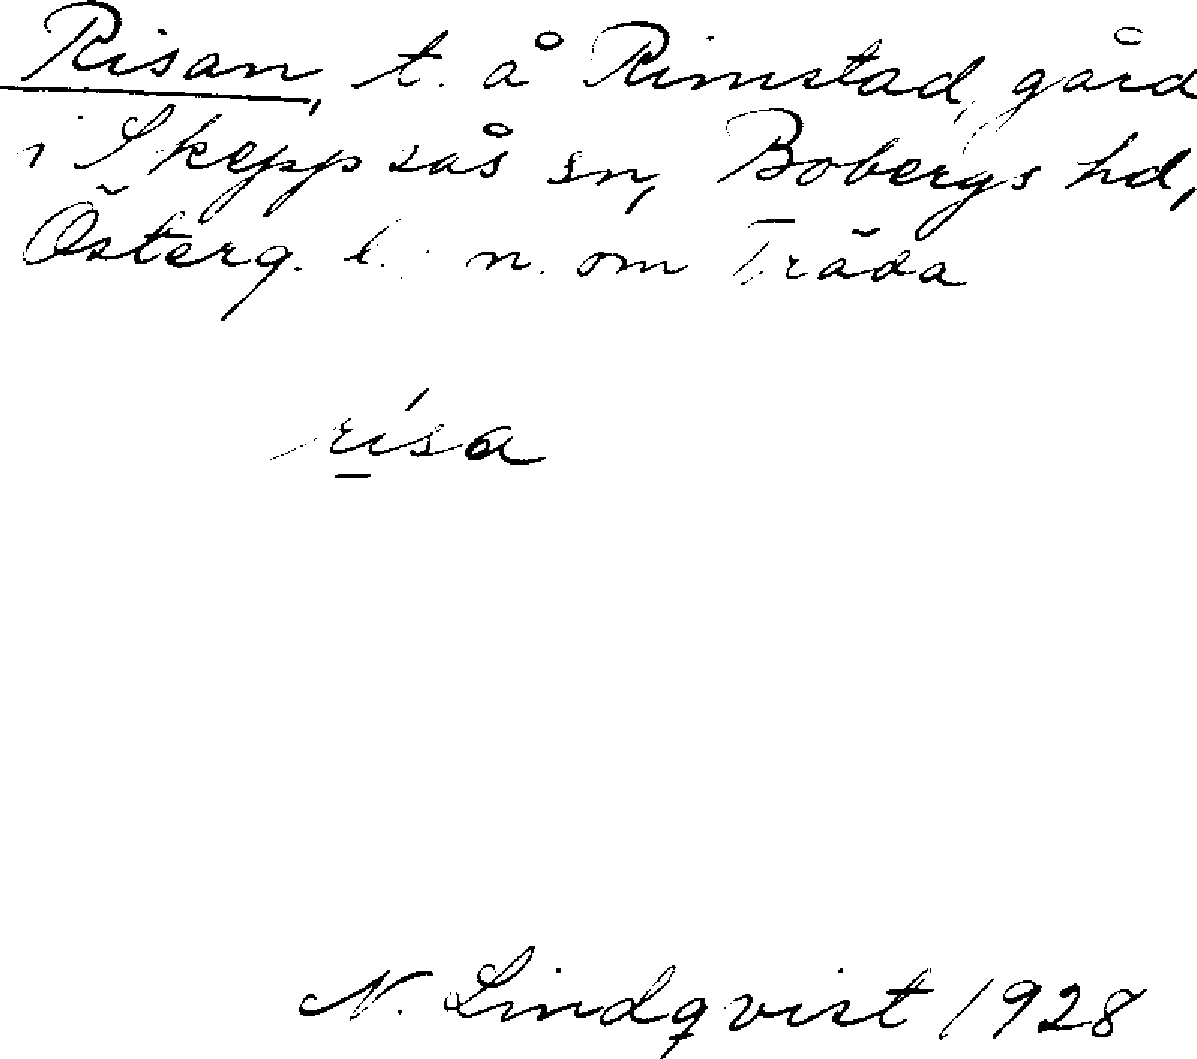 Risan, t. å Rimstad, gård
i Skeppsås sn, Bobergs hd,
Österg. l. n. om Träda
rísa
N. Lindqvist 1928